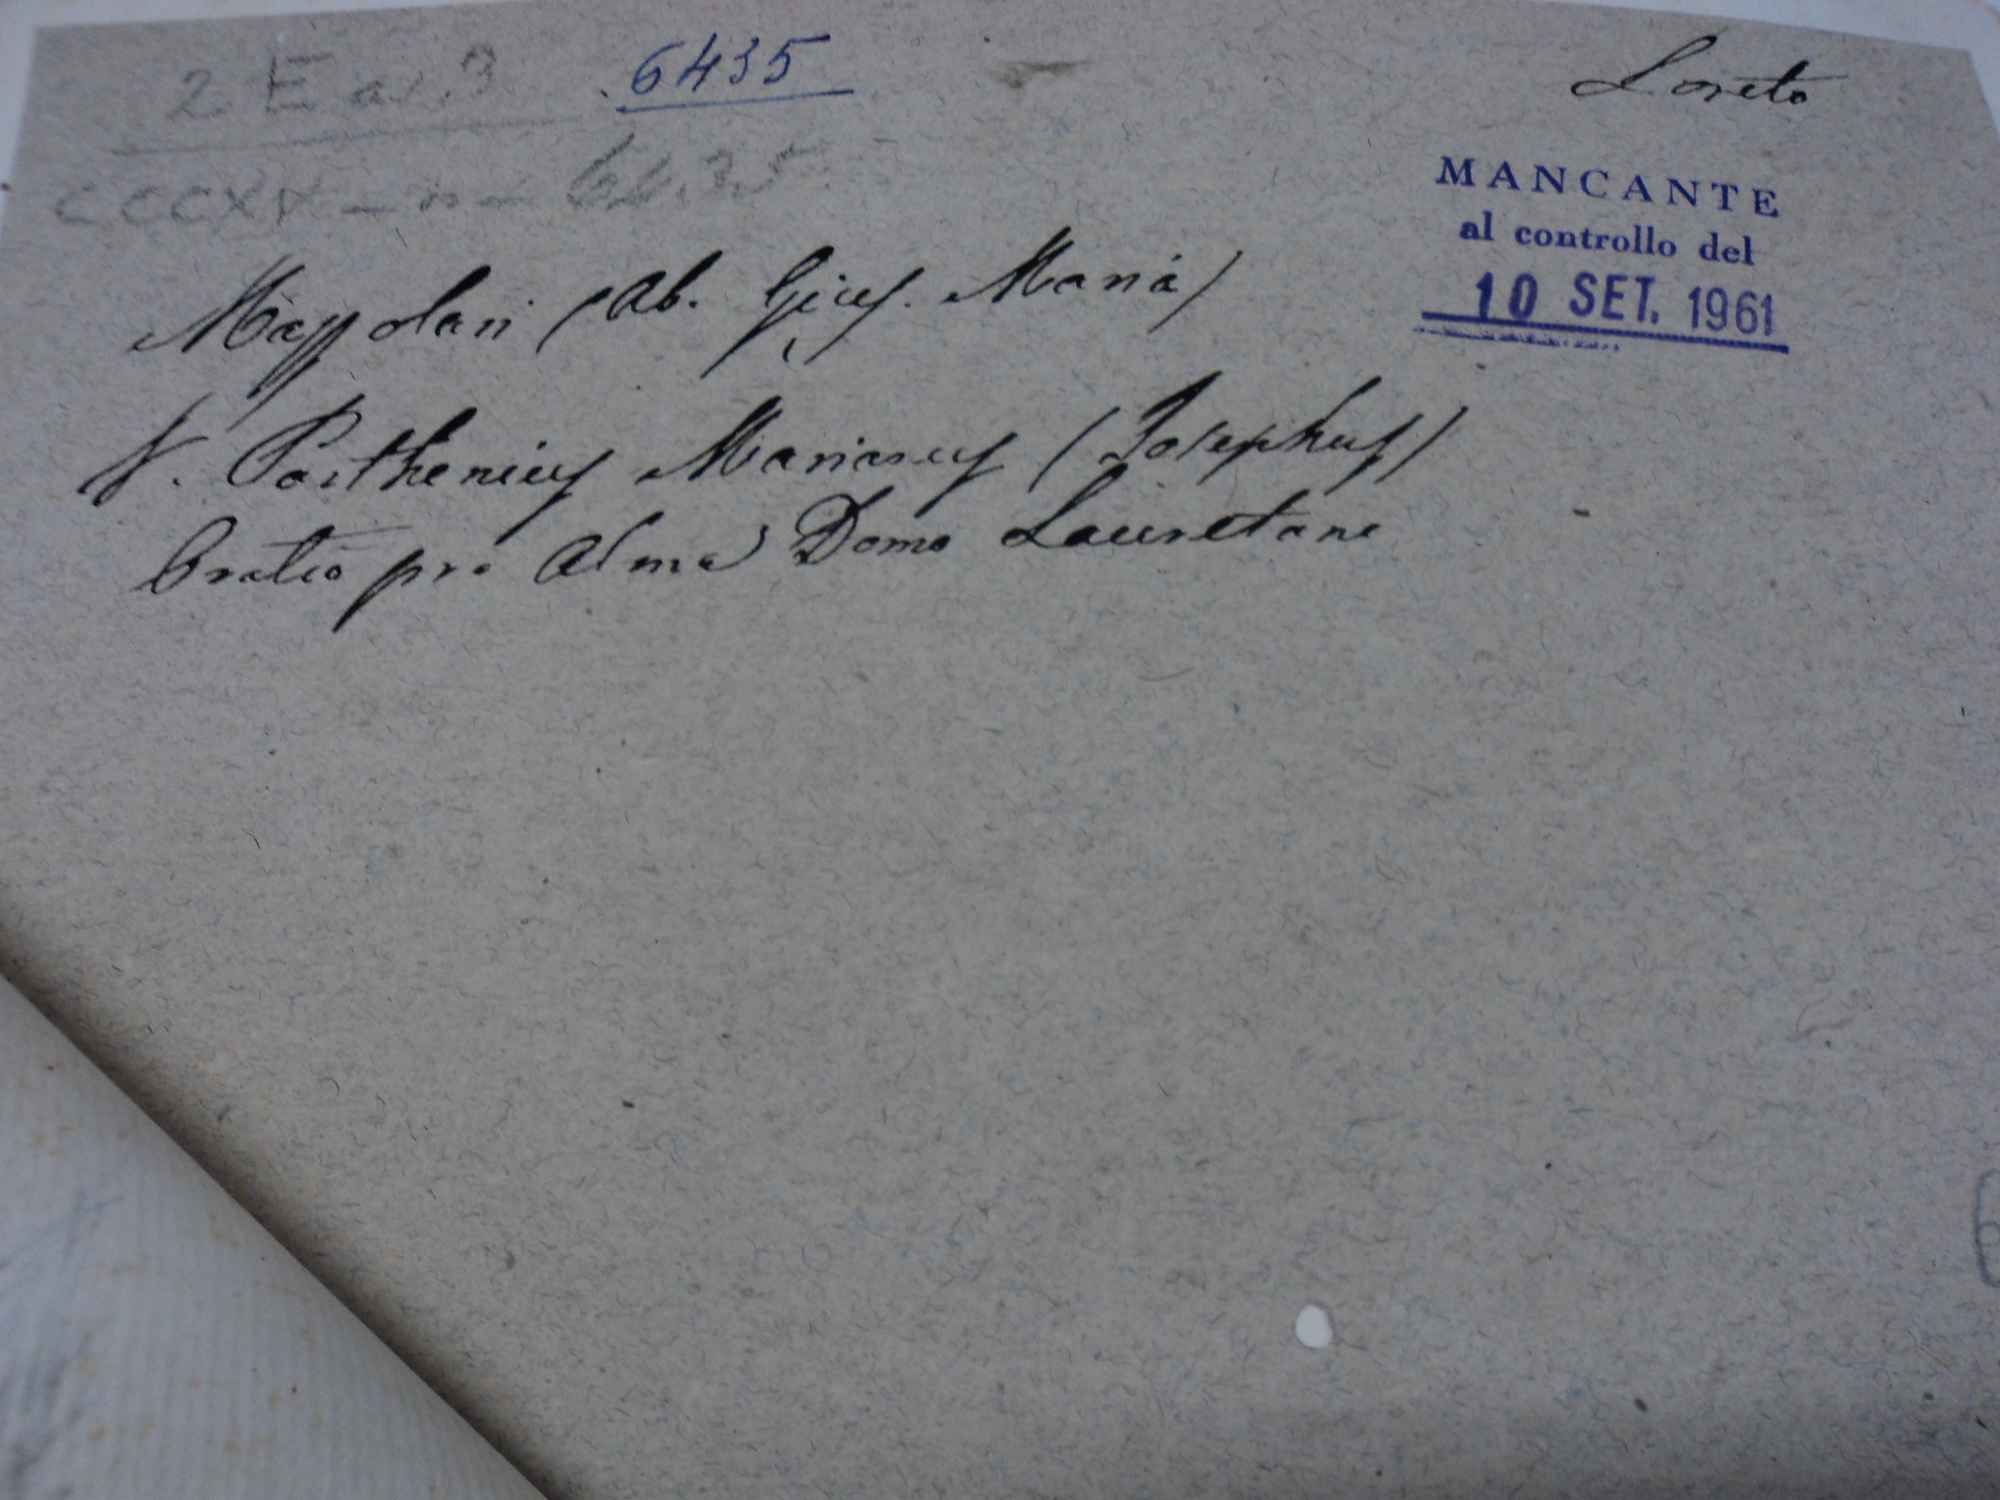 2 E ar. 3
6435
Loreto
CCCXV - n - 6435
MANCANTE
al controllo del
10 SET. 1961
Mazzolari (Ab. Gius. Maria)
V. Parthenius Marianus (Josephus)
Oratio pro Alma Domo Lauretana
6